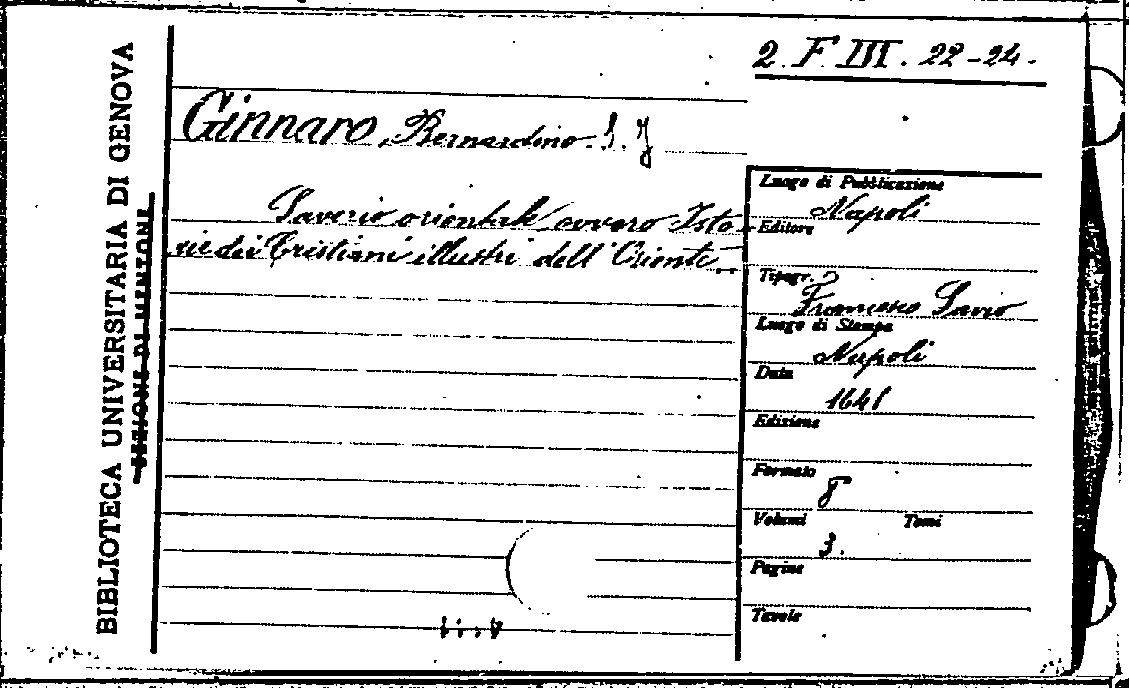 2. F III. 22-24.
BIBLIOTECA UNIVERSITARIA DI GENOVA
SEZIONE DI MENTONE
Ginnaro, Bernardino. S. J
Saverio orientale ovvero Isto-
rie dei Cristiani illustri dell'Oriente...
Luogo di Pubblicazione
Napoli
Editore
Tipogr.
Francesco Savio
Luogo di Stampa
Napoli
Data
1641
Edizione
Formato
8
Volumi Tomi
3.
Pagine
Tavole